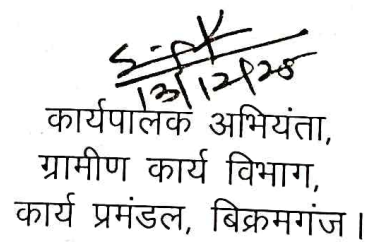 13/12/25
कार्यपालक अभियंता,
ग्रामीण कार्य विभाग,
कार्य प्रमंडल, बिक्रमगंज।